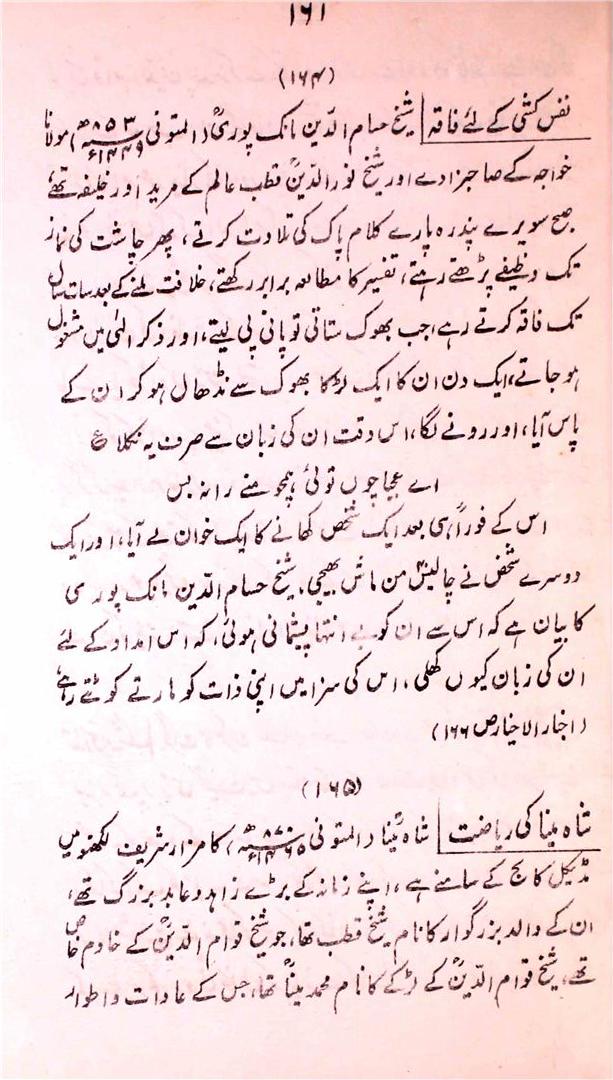 ۱۶۱
(۱۶۴)
نفس کشی کے لئے فاقہ | شیخ حسام الدّین مانک پوریؒ (المتوفی ۸۵۳ھ ۱۴۴۹ء) مولانا
خواجہ کے صاحبزادے اور شیخ نور الدّینؒ قطب عالم کے مرید اور خلیفہ تھے،
صبح سویرے پندرہ پارے کلام پاک کی تلاوت کرتے، پھر چاشت کی نماز
تک وظیفے پڑھتے رہتے، تفسیر کا مطالعہ برابر رکھتے، خلافت ملنے کے بعد سات سال
تک فاقہ کرتے رہے، جب بھوک ستاتی تو پانی پی لیتے، اور ذکر الٰہی میں مشغول
ہو جاتے، ایک دن ان کا ایک لڑکا بھوک سے نڈھال ہو کر ان کے
پاس آیا، اور رونے لگا، اس وقت ان کی زبان سے صرف یہ نکلا ع
اے عجبا چوں توئی ہمچو منے را نہ بس
اس کے فوراً ہی بعد ایک شخص کھانے کا ایک خوان لے آیا، اور ایک
دوسرے شخص نے چالیس من ماش بھیجی. شیخ حسام الدّین مانک پوری
کا بیان ہے کہ اس سے ان کو بے انتہا پشیمانی ہوئی، کہ اس امداد کے لئے
ان کی زبان کیوں کھلی، اس کی سزا میں اپنی ذات کو مارتے کوٹتے رہے
(اخبار الاخیار ص ۱۶۶)
(۱۶۵)
شاہ مینا کی ریاضت | شاہ مینا (المتوفی ۸۷۰ھ ۱۴۶۵ء) کا مزار شریف لکھنو میں
مڈیکل کالج کے سامنے ہے، اپنے زمانہ کے بڑے زاہد و عابد بزرگ تھے،
ان کے والد بزرگوار کا نام شیخ قطب تھا، جو شیخ قوام الدّینؒ کے خادم خاص
تھے، شیخ قوام الدّینؒ کے لڑکے کا نام محمد میناؒ تھا، جس کے عادات و اطوار